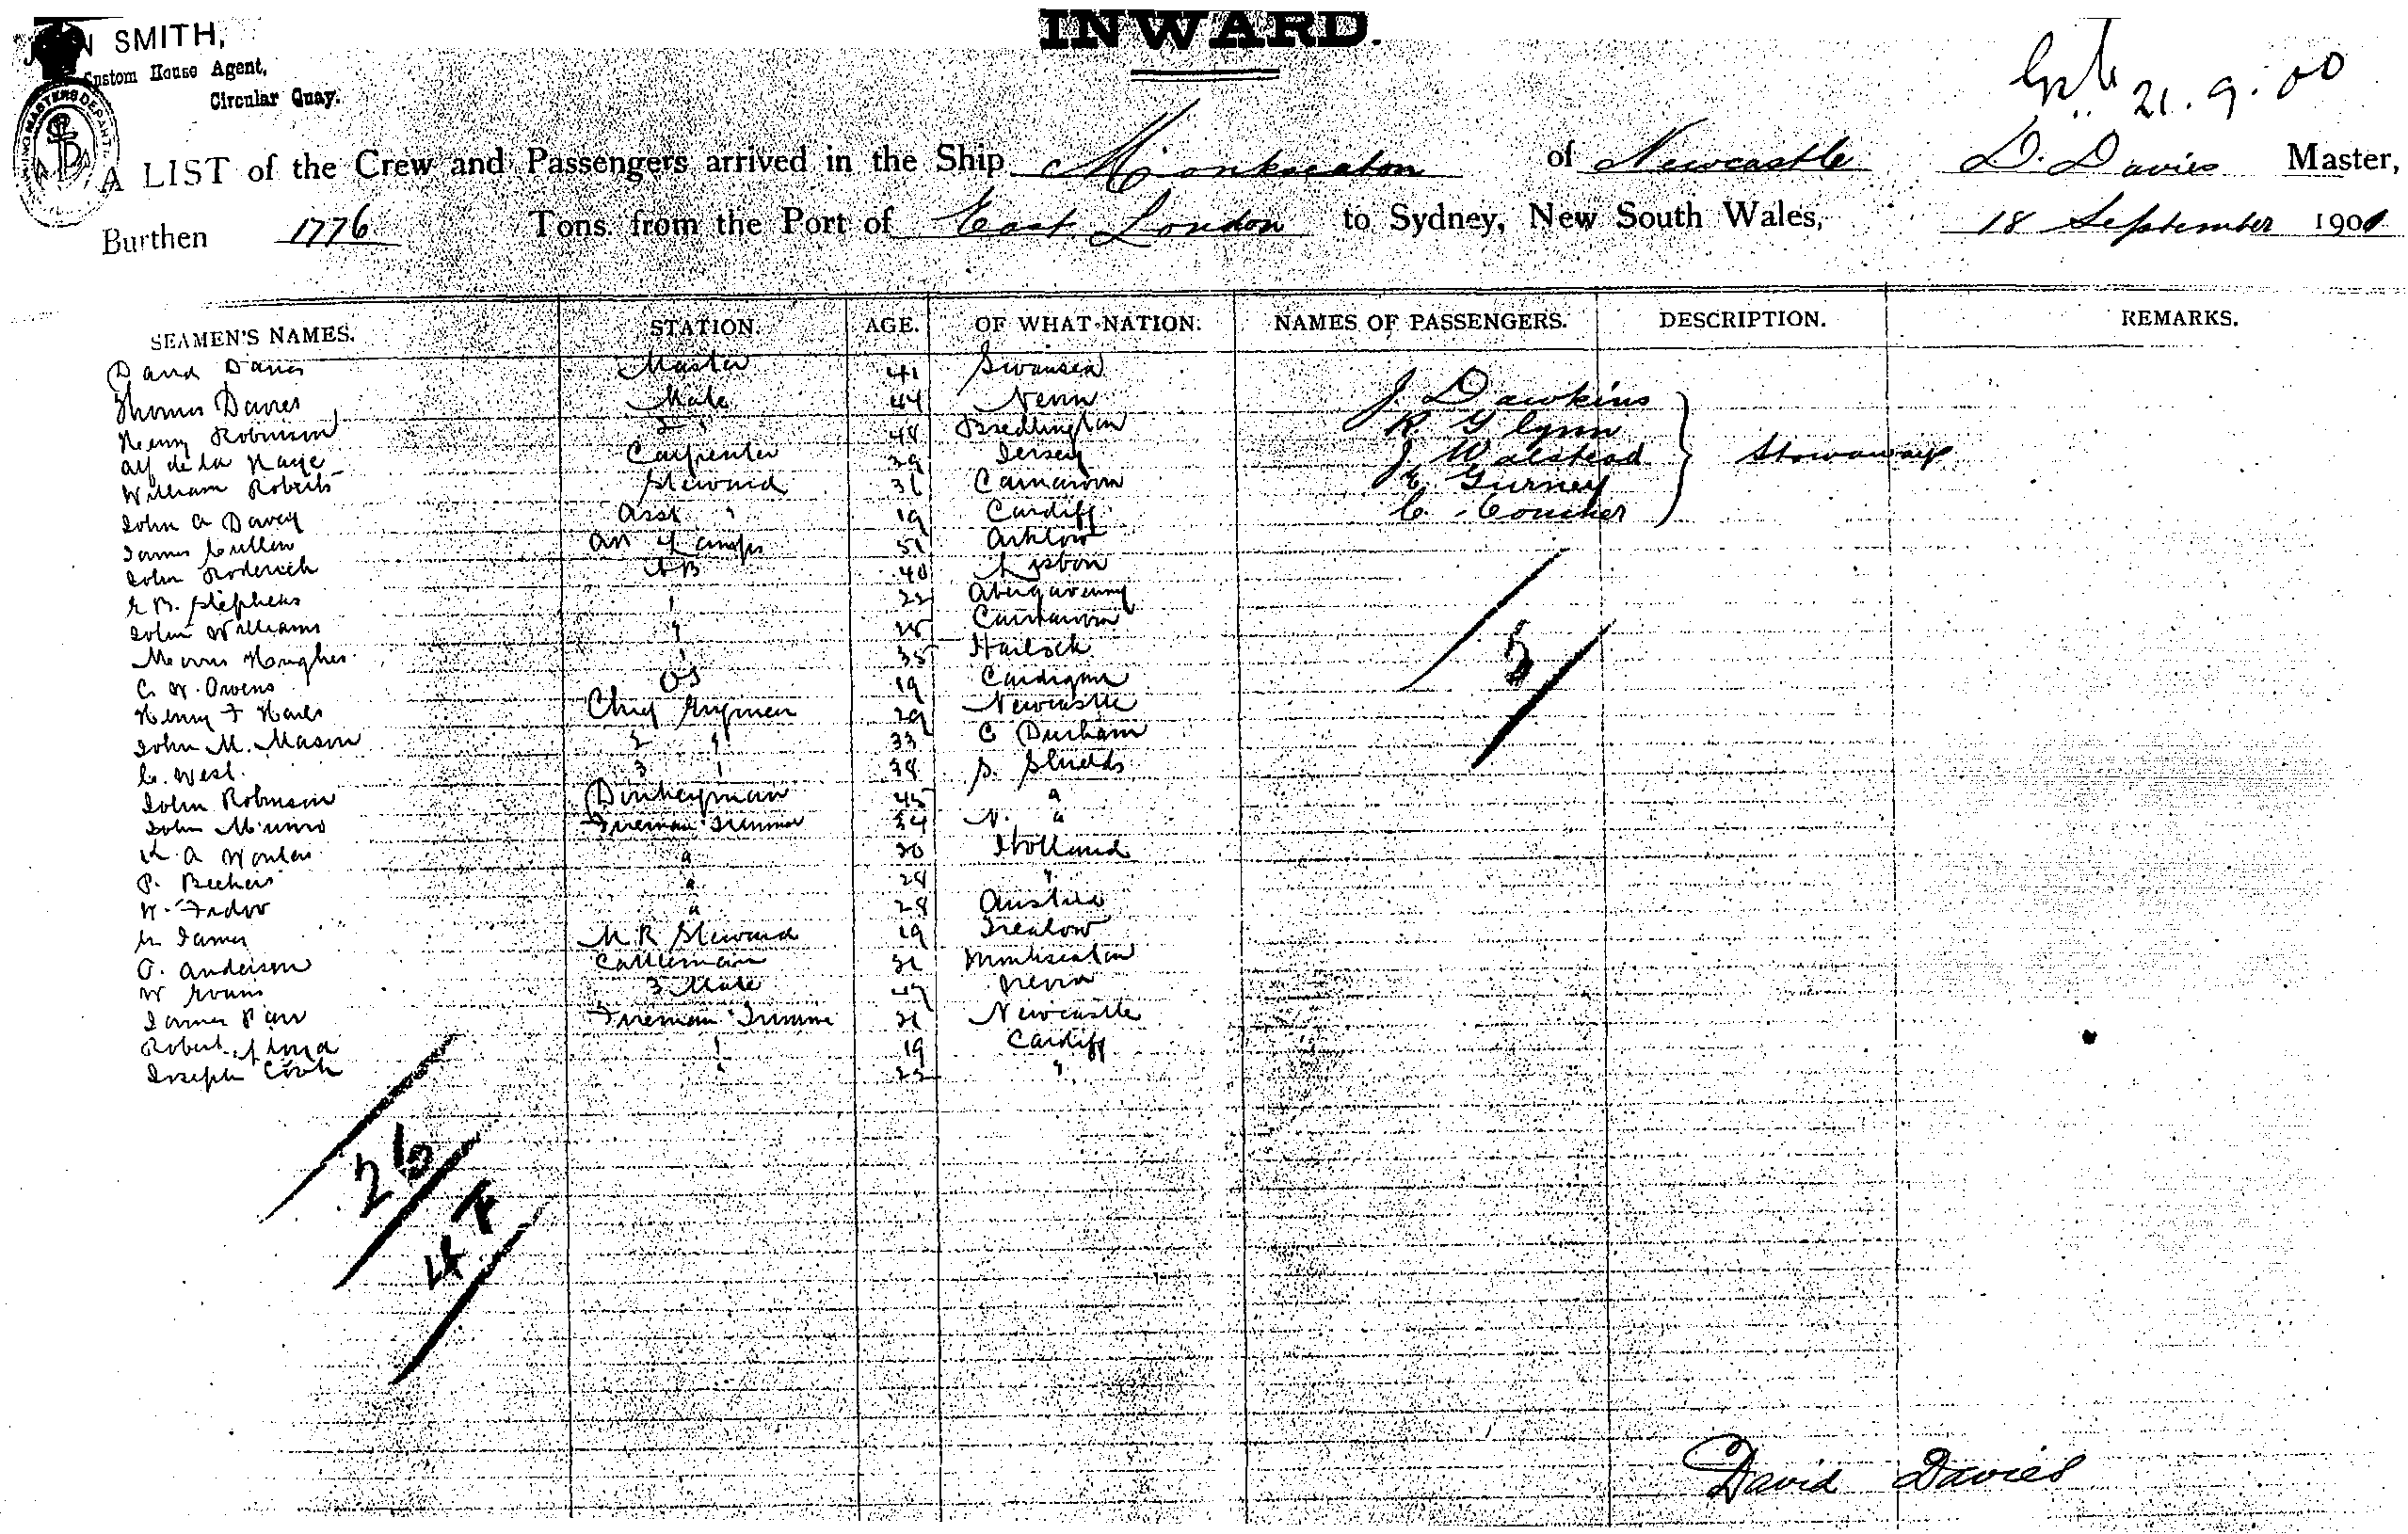 INWARD.
SMITH,
Custom House Agent,
Circular Quay.
21.9.00
A LIST of the Crew and Passengers arrived in the Ship Monkseaton of Newcastle D. Davies Master,
Burthen 1776 Tons from the Port of East London to Sydney, New South Wales, 18 September 1900
SEAMEN'S NAMES. STATION. AGE. OF WHAT NATION. NAMES OF PASSENGERS. DESCRIPTION. REMARKS.
David Davies Master 41 Swansea
Thomas Davies Mate 44 Nevin J. Dawkins
Henry Robinson 2 " 48 Bedlington R. Glynn
Alf de la Haye Carpenter 39 Jersey J Walstead Stowaways
William Roberts Steward 31 Carnarvon E. Gurney
John A Davey Asst " 19 Cardiff C. Coucher
James Cullen 51 Arklow
John Roderick AB 40 Lisbon
E B. Stephens " 22 Abergavenny
John Williams " 25 Carnarvon
Morris Hughes " 35 Harlech
C. W. Owens OS 19 Cardigan
Henry F Chief Engineer 29 Newcastle
John M. Mason 2 " 33 C Durham
C. West. 3 " 38 S. Shields
John Robinson Donkeyman 45 "
John Munro Fireman Trimmer 34 N. "
A " 30 Holland
P. Beekers " 28 "
" 28 Austria
James M R Steward 19 Trealaw
O. Anderson Cattleman 21 Monkseaton
W Evans 3 Mate 47 Nevin
James Parr Fireman Trimmer 21 Newcastle
Robert Lloyd " 19 Cardiff
Joseph Cook " 22 "
5
26
David Davies